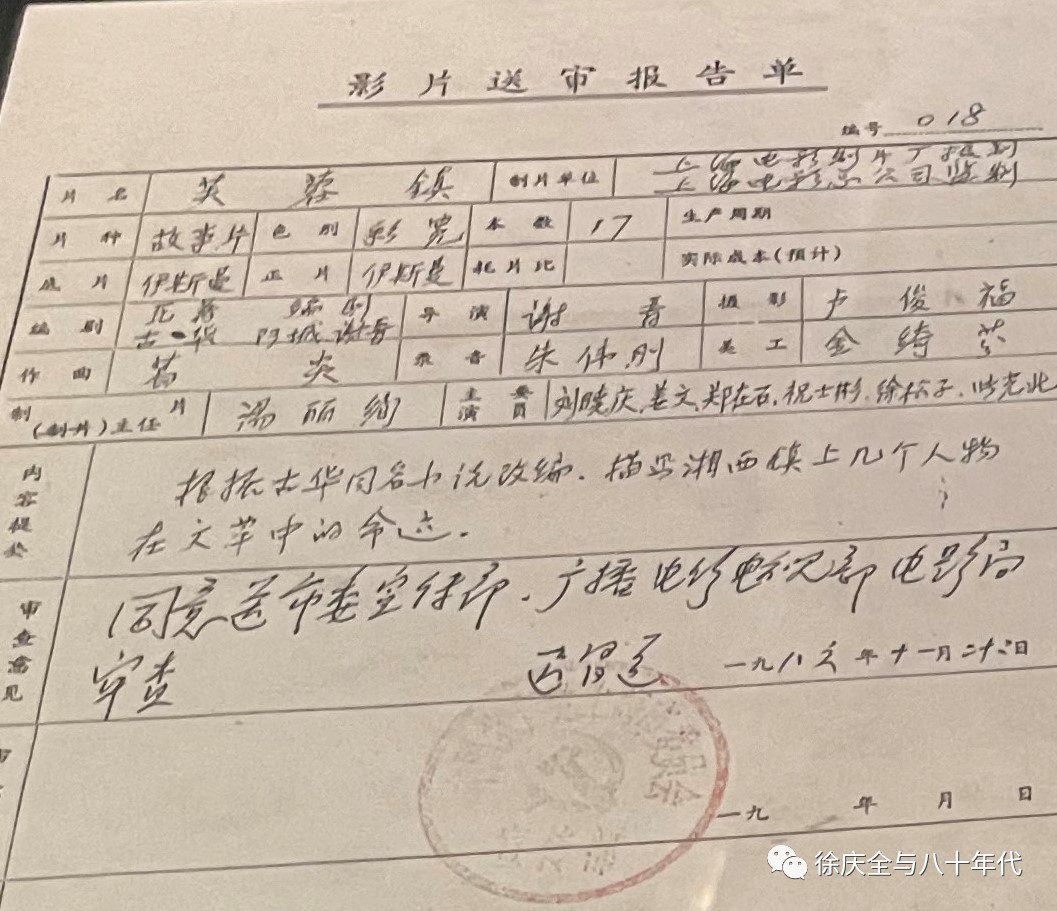 影片送审报告单
编号 018
片名 芙蓉镇 制片单位 上海电影制片厂摄制
上海电影总公司监制
片种 故事片 色别 彩宽 本数 17 生产周期
底片 伊斯曼 正片 伊斯曼 耗片比 实际成本(预计)
编剧 古华 阿城 谢晋 导演 谢晋 摄影 卢俊福
作曲 葛炎 录音 朱伟刚 美工 金绮芬
制片(制片)主任 汤丽绚 主要演员 刘晓庆、姜文、郑在石、祝士彬、徐松子、
内容提要 根据古华同名小说改编.描写湘西镇上几个人物
在文革中的命运.
审查意见 同意送市委宣传部、广播电影电视部电影局
审查 一九八六年十一月二十六日
一九 年 月 日
徐庆全与八十年代